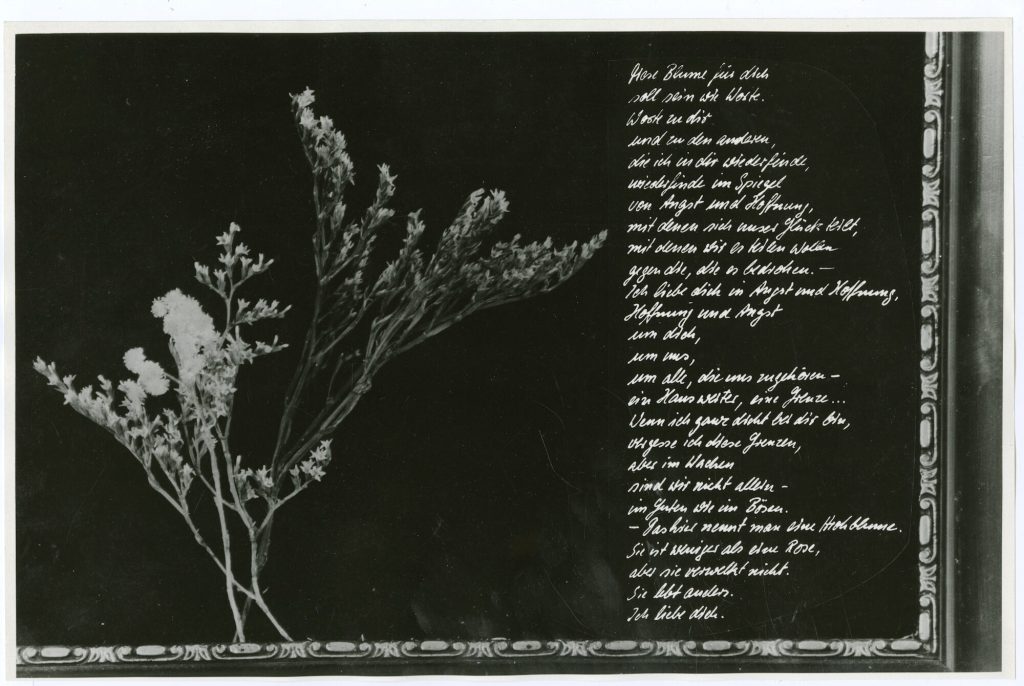 Diese Blume für dich
soll sein wie Worte.
Worte zu dir
und zu den anderen,
die ich in dir wiederfinde,
wiederfinde im Spiegel
von Angst und Hoffnung,
mit denen sich unser Glück teilt,
mit denen wir es teilen wollen
gegen die, die es bedrohen. –
Ich liebe dich in Angst und Hoffnung,
Hoffnung und Angst
um dich,
um uns,
um alle, die uns zugehören –
ein Haus weiter, eine Grenze...
Wenn ich ganz dicht bei dir bin,
vergesse ich diese Grenzen,
aber im Wachen
sind wir nicht allein –
im Guten wie im Bösen.
– Das hier nennt man eine Strohblume.
Sie ist weniger als eine Rose,
aber sie verwelkt nicht.
Sie lebt anders.
Ich liebe dich.